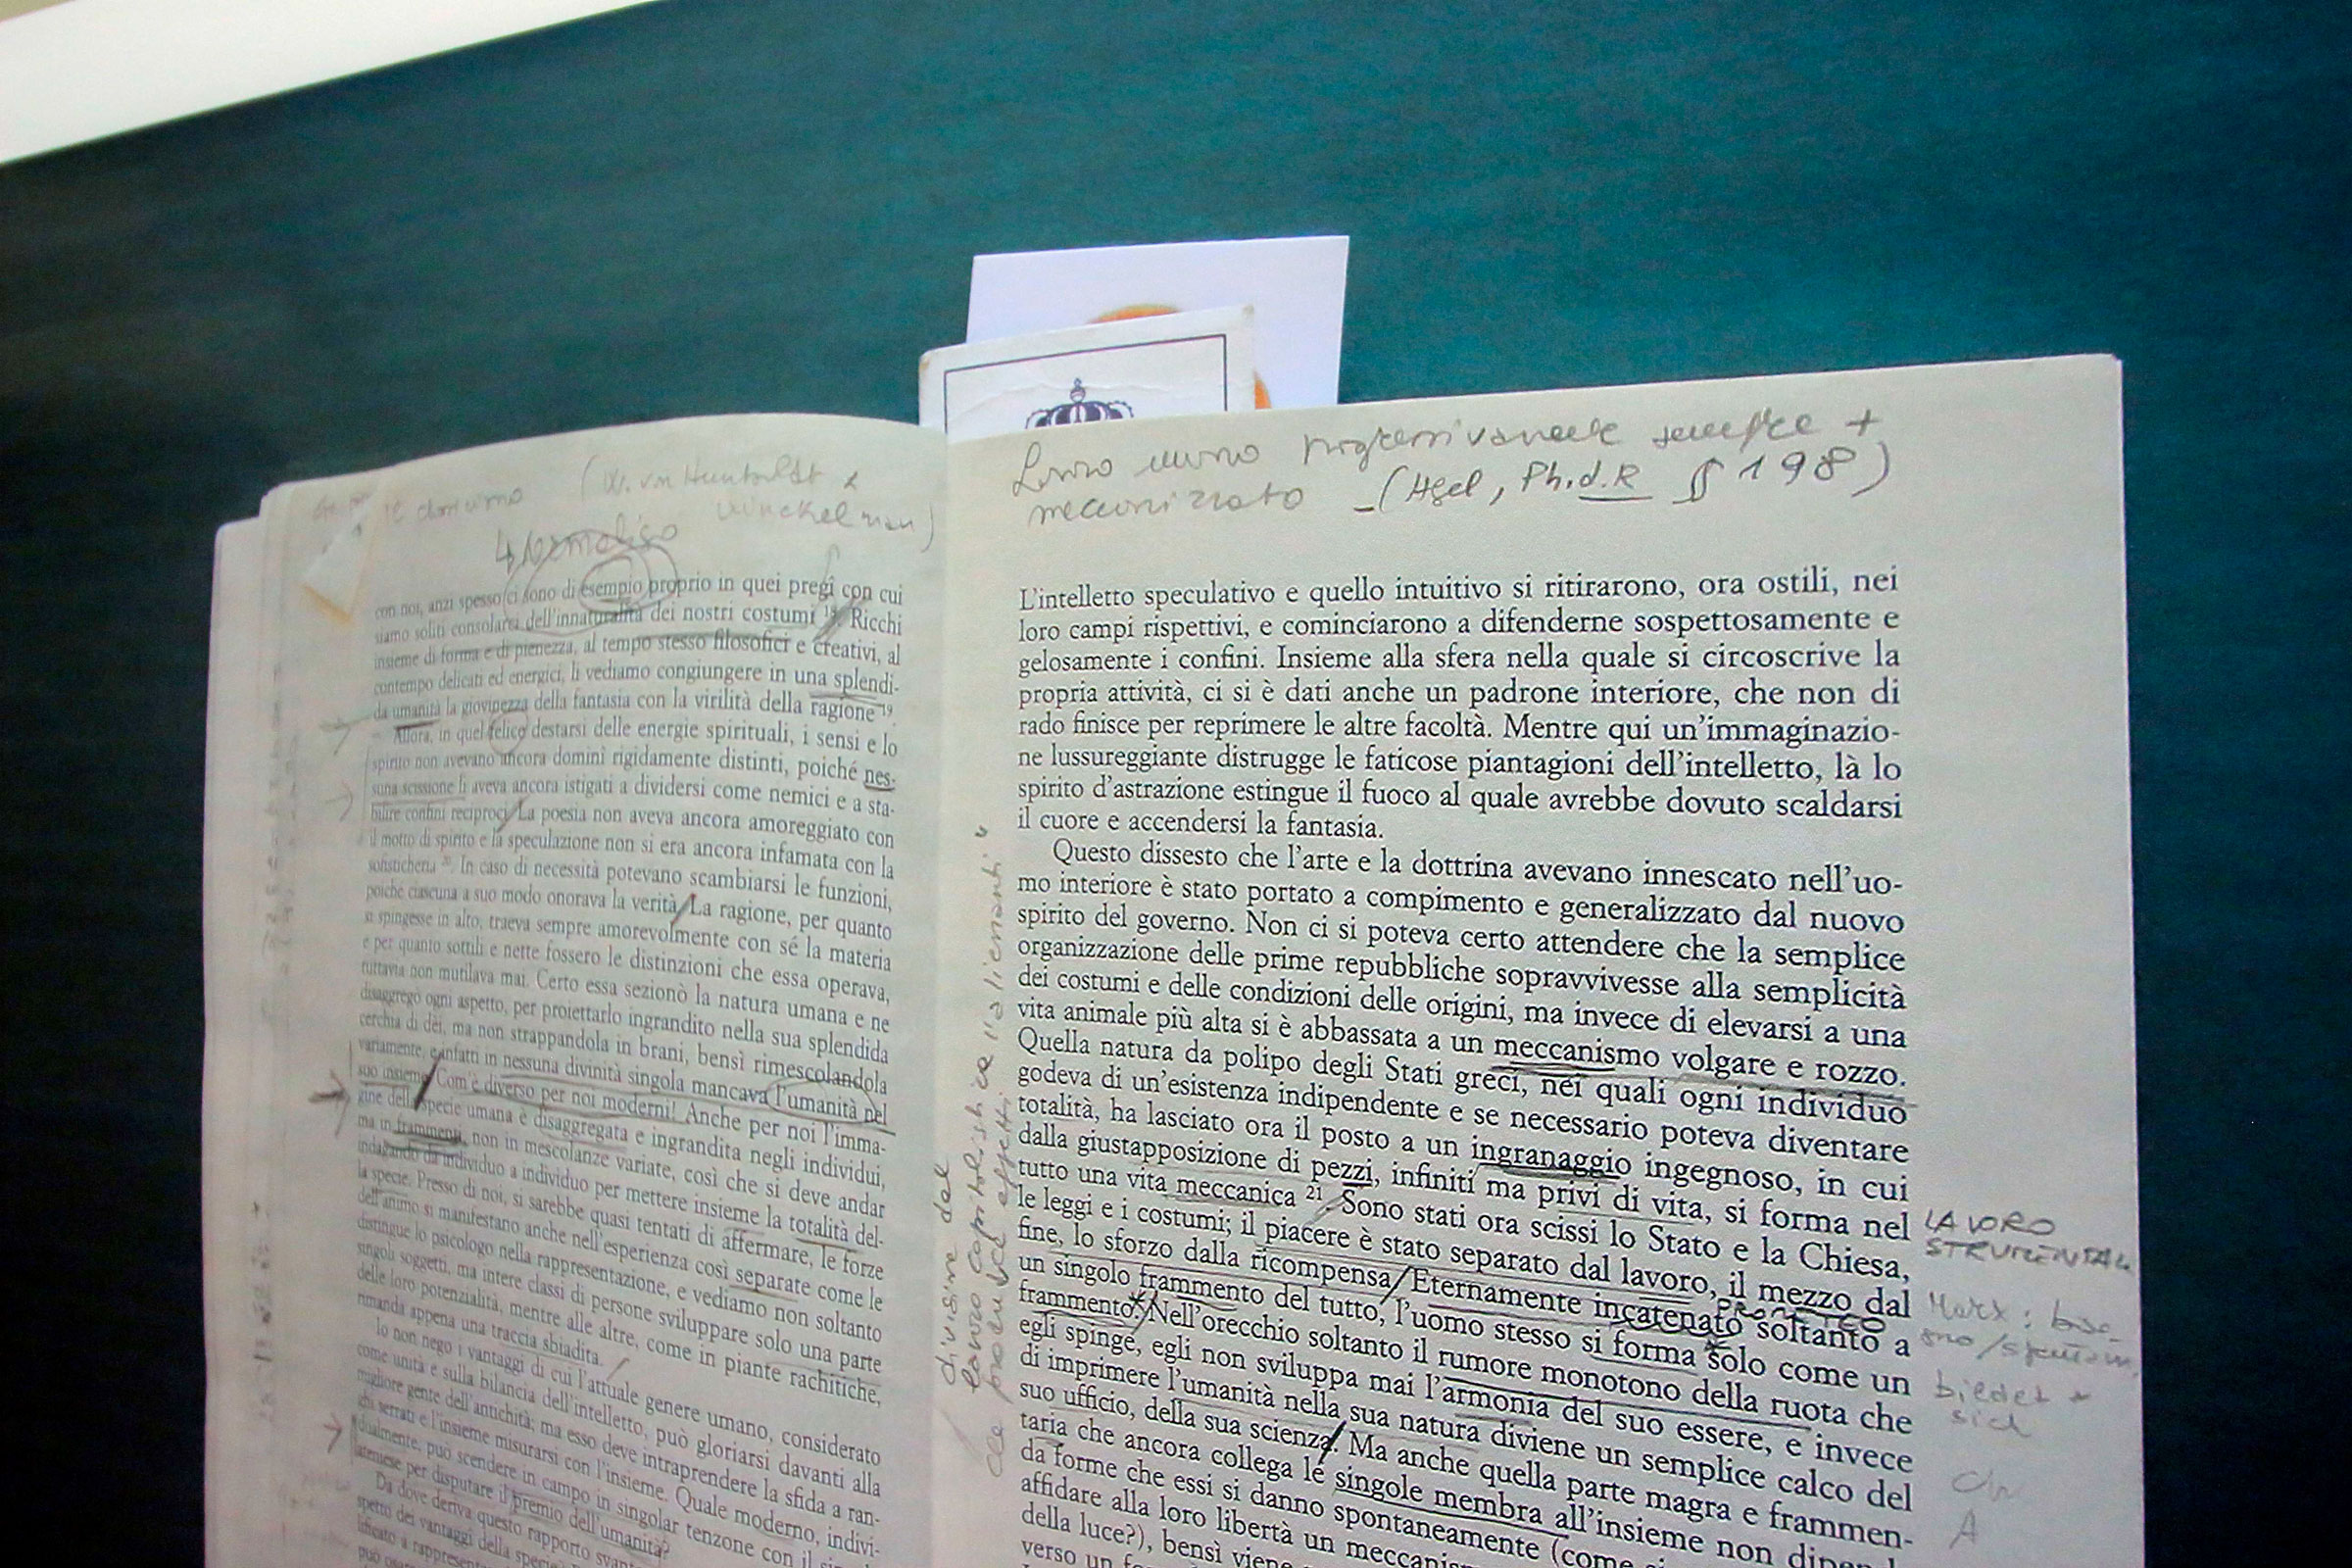 il dominio (W. von Humboldt &
Winckelman)
↳ Normaliso
con noi, anzi spesso ci sono di esempio proprio in quei pregi con cui
siamo soliti consolarci dell'innaturalità dei nostri costumi 18. Ricchi
insieme di forma e di pienezza, al tempo stesso filosofici e creativi, al
contempo delicati ed energici, li vediamo congiungere in una splendi-
da umanità la giovinezza della fantasia con la virilità della ragione 19.
Allora, in quel felice destarsi delle energie spirituali, i sensi e lo
spirito non avevano ancora dominî rigidamente distinti, poiché nes-
suna scissione li aveva ancora istigati a dividersi come nemici e a sta-
bilire confini reciproci. La poesia non aveva ancora amoreggiato con
il motto di spirito e la speculazione non si era ancora infamata con la
sofisticheria 20. In caso di necessità potevano scambiarsi le funzioni,
poiché ciascuna a suo modo onorava la verità. La ragione, per quanto
si spingesse in alto, traeva sempre amorevolmente con sé la materia
e per quanto sottili e nette fossero le distinzioni che essa operava,
tuttavia non mutilava mai. Certo essa sezionò la natura umana e ne
disaggregò ogni aspetto, per proiettarlo ingrandito nella sua splendida
cerchia di dèi, ma non strappandola in brani, bensì rimescolandola
variamente, e infatti in nessuna divinità singola mancava l'umanità nel
suo insieme. Com'è diverso per noi moderni! Anche per noi l'imma-
gine della specie umana è disaggregata e ingrandita negli individui,
ma in frammenti, non in mescolanze variate, così che si deve andar
indagando da individuo a individuo per mettere insieme la totalità del-
la specie. Presso di noi, si sarebbe quasi tentati di affermare, le forze
dell'animo si manifestano anche nell'esperienza così separate come le
distingue lo psicologo nella rappresentazione, e vediamo non soltanto
singoli soggetti, ma intere classi di persone sviluppare solo una parte
delle loro potenzialità, mentre alle altre, come in piante rachitiche,
rimanda appena una traccia sbiadita.
Io non nego i vantaggi di cui l'attuale genere umano, considerato
come unità e sulla bilancia dell'intelletto, può gloriarsi davanti alla
migliore gente dell'antichità; ma esso deve intraprendere la sfida a ran-
ghi serrati e l'insieme misurarsi con l'insieme. Quale moderno, indivi-
dualmente, può scendere in campo in singolar tenzone con il
ateniese per disputare il premio dell'umanità?
Da dove deriva questo rapporto
spetto dei vantaggi della
lificato a
può
Lavoro umano progressivamente semplice +
meccanizzato - (Hgel, Ph.d.R § 198)
L'intelletto speculativo e quello intuitivo si ritirarono, ora ostili, nei
loro campi rispettivi, e cominciarono a difenderne sospettosamente e
gelosamente i confini. Insieme alla sfera nella quale si circoscrive la
propria attività, ci si è dati anche un padrone interiore, che non di
rado finisce per reprimere le altre facoltà. Mentre qui un'immaginazio-
ne lussureggiante distrugge le faticose piantagioni dell'intelletto, là lo
spirito d'astrazione estingue il fuoco al quale avrebbe dovuto scaldarsi
il cuore e accendersi la fantasia.
Questo dissesto che l'arte e la dottrina avevano innescato nell'uo-
mo interiore è stato portato a compimento e generalizzato dal nuovo
spirito del governo. Non ci si poteva certo attendere che la semplice
organizzazione delle prime repubbliche sopravvivesse alla semplicità
dei costumi e delle condizioni delle origini, ma invece di elevarsi a una
vita animale più alta si è abbassata a un meccanismo volgare e rozzo.
Quella natura da polipo degli Stati greci, nei quali ogni individuo
godeva di un'esistenza indipendente e se necessario poteva diventare
totalità, ha lasciato ora il posto a un ingranaggio ingegnoso, in cui
dalla giustapposizione di pezzi, infiniti ma privi di vita, si forma nel
tutto una vita meccanica 21. Sono stati ora scissi lo Stato e la Chiesa,
le leggi e i costumi; il piacere è stato separato dal lavoro, il mezzo dal
fine, lo sforzo dalla ricompensa. Eternamente incatenato soltanto a
un singolo frammento del tutto, l'uomo stesso si forma solo come un
frammento. Nell'orecchio soltanto il rumore monotono della ruota che
egli spinge, egli non sviluppa mai l'armonia del suo essere, e invece
di imprimere l'umanità nella sua natura diviene un semplice calco del
suo ufficio, della sua scienza. Ma anche quella parte magra e frammen-
taria che ancora collega le singole membra all'insieme non
da forme che essi si danno spontaneamente (come
affidare alla loro libertà un
della luce?), bensì
verso un
divisione del
lavoro capitalistica
che produce effetti "alienanti"
LAVORO
STRUMENTAL
PROMETEO
Marx: biso-
gno/
bildet
sich
A